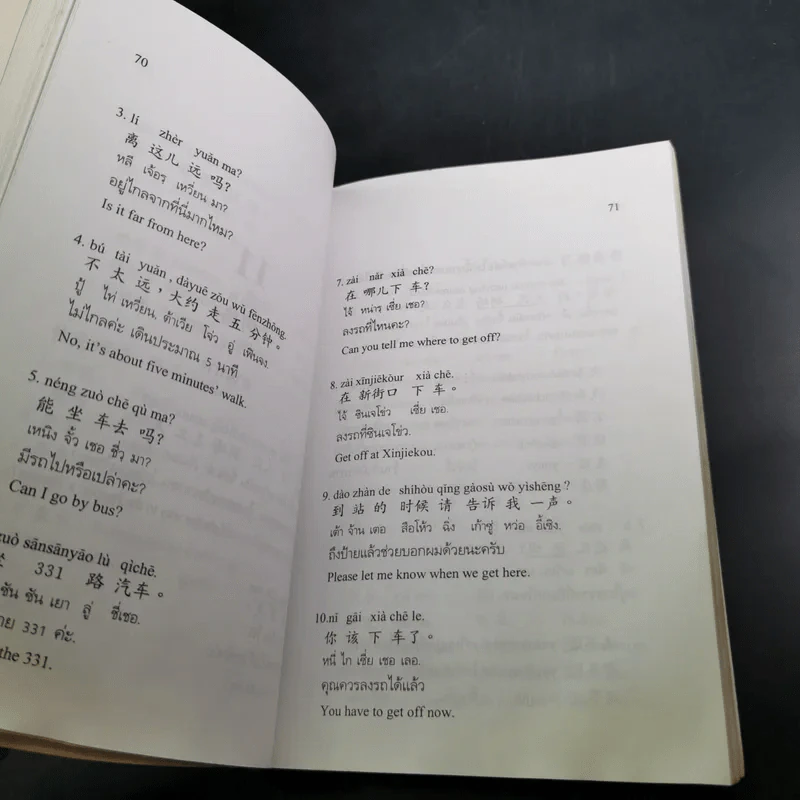 70
3. lí zhèr yuǎn ma?
离 这儿 远 吗?
หลี เจ้อร เหวี่ยน มา?
อยู่ไกลจากที่นี่มากไหม?
Is it far from here?
4. bú tài yuǎn, dàyuē zǒu wǔ fēnzhōng.
不 太 远，大约 走 五 分钟。
ปู๋ ไท่ เหวี่ยน, ต้าเวีย โจ่ว อู่ เฟินจง.
ไม่ไกลค่ะ เดินประมาณ 5 นาที
No, it's about five minutes' walk.
5. néng zuò chē qù ma?
能 坐 车 去 吗?
เหนิง จั้ว เชอ ชวี่ มา?
มีรถไปหรือเปล่าคะ?
Can I go by bus?
zuò sānsānyāo lù qìchē.
331 路 汽车。
ซัน ซัน เยา ลู่ ชี่เชอ.
331 ค่ะ.
the 331.
71
7. zài nǎr xià chē?
在 哪儿 下 车?
ไจ้ หน่าร เซี่ย เชอ?
ลงรถที่ไหนคะ?
Can you tell me where to get off?
8. zài xīnjiēkòur xià chē.
在 新街口 下 车。
ไจ้ ซินเจโข่ว เซี่ย เชอ.
ลงรถที่ซินเจโข่ว.
Get off at Xinjiekou.
9. dào zhàn de shíhòu qǐng gàosù wǒ yìshēng?
到 站 的 时候 请 告诉 我 一声。
เต้า จ้าน เตอ สือโห้ว ฉิ่ง เก้าซู่ หว่อ อี้เซิง.
ถึงป้ายแล้วช่วยบอกผมด้วยนะครับ
Please let me know when we get here.
10.nǐ gāi xià chē le.
你 该 下 车 了。
หนี่ ไก เซี่ย เชอ เลอ.
คุณควรลงรถได้แล้ว
You have to get off now.